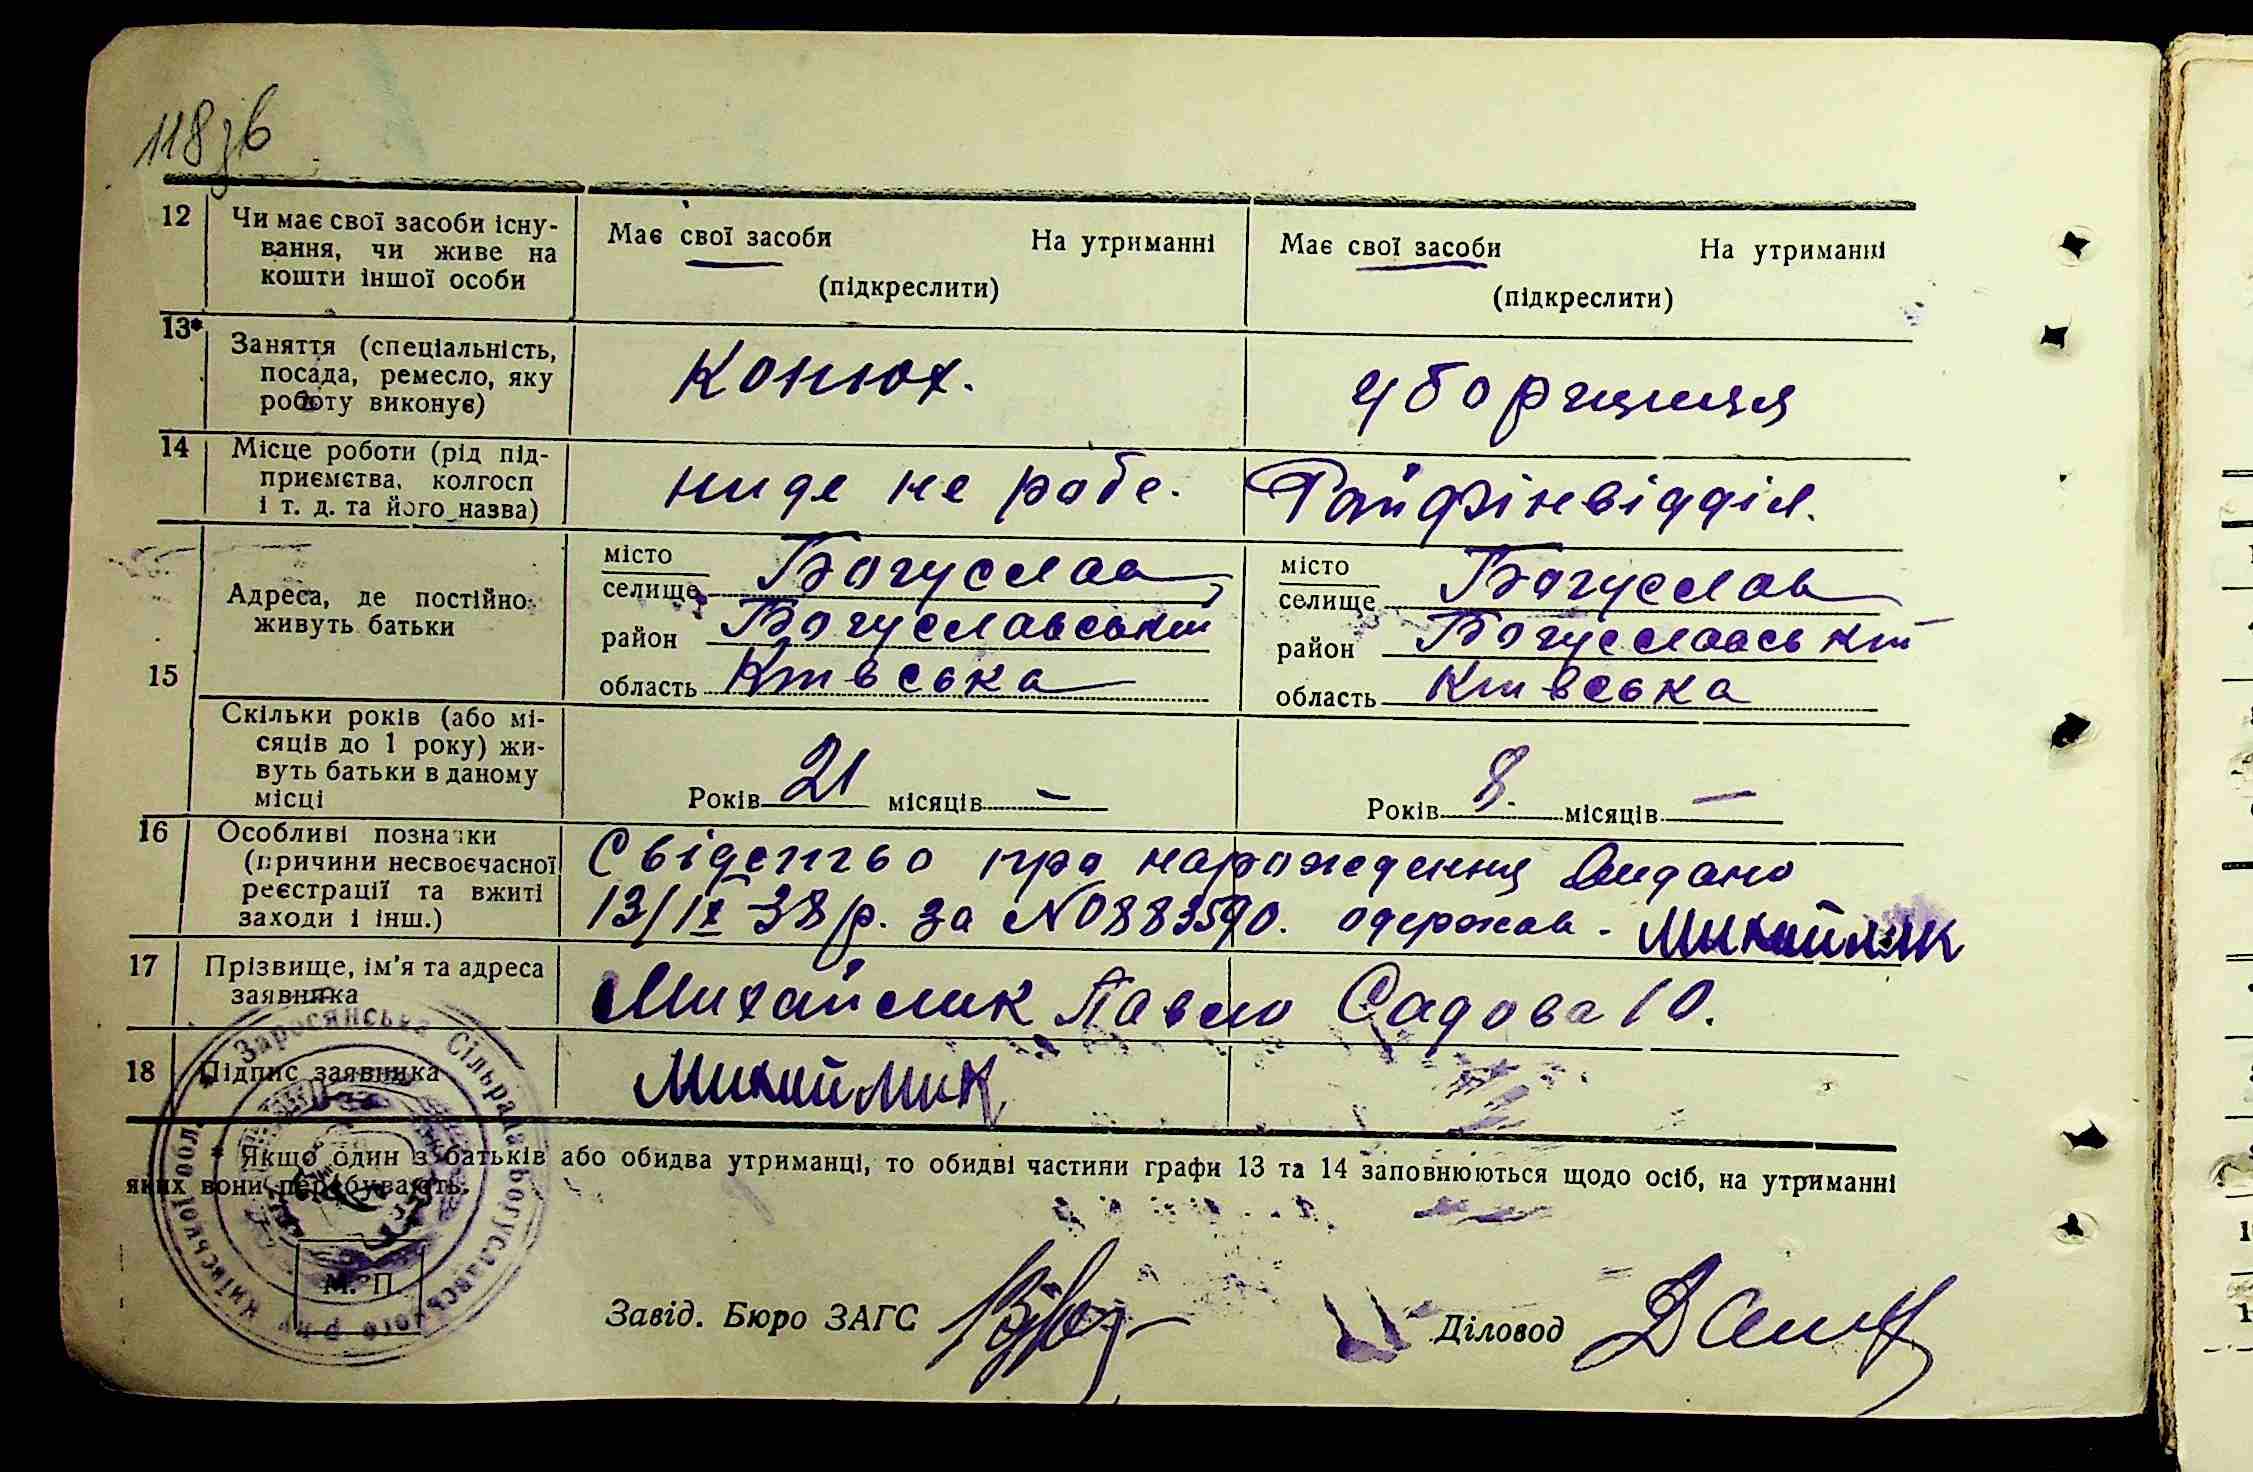 118 зв
12 Чи має свої засоби існу- Має свої засоби На утриманні Має свої засоби На утриманні
вання, чи живе на
кошти іншої особи (підкреслити) (підкреслити)
13* Заняття (спеціальність, Конюх. уборщиця
посада, ремесло, яку
роботу виконує)
14 Місце роботи (рід під- ниде не робе. Райфінвідділ.
приємства, колгосп
і т. д. та його назва)
15 Адреса, де постійно місто Богуслав місто Богуслав
живуть батьки селище селище
район Богуславський район Богуславський
область Київська область Київська
Скільки років (або мі-
сяців до 1 року) жи-
вуть батьки в даному
місці Років 21 місяців — Років 8. місяців —
16 Особливі позначки Свідентво про нарождення видано
(причини несвоєчасної
реєстрації та вжиті 13/IX 38 р. за №0883590. одержав - Михайлик
заходи і інш.)
17 Прізвище, ім'я та адреса Михайлик Павло Садова 10.
заявника
18 Підпис заявника Михайлик
* Якщо один з батьків або обидва утриманці, то обидві частини графи 13 та 14 заповнюються щодо осіб, на утриманні
яких вони перебувають.
Заросянська Сільрада Богуславського р-ну Київської обл.
М. П.
Завід. Бюро ЗАГС Діловод